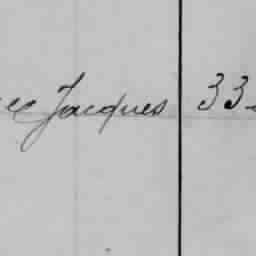 Jacques 33